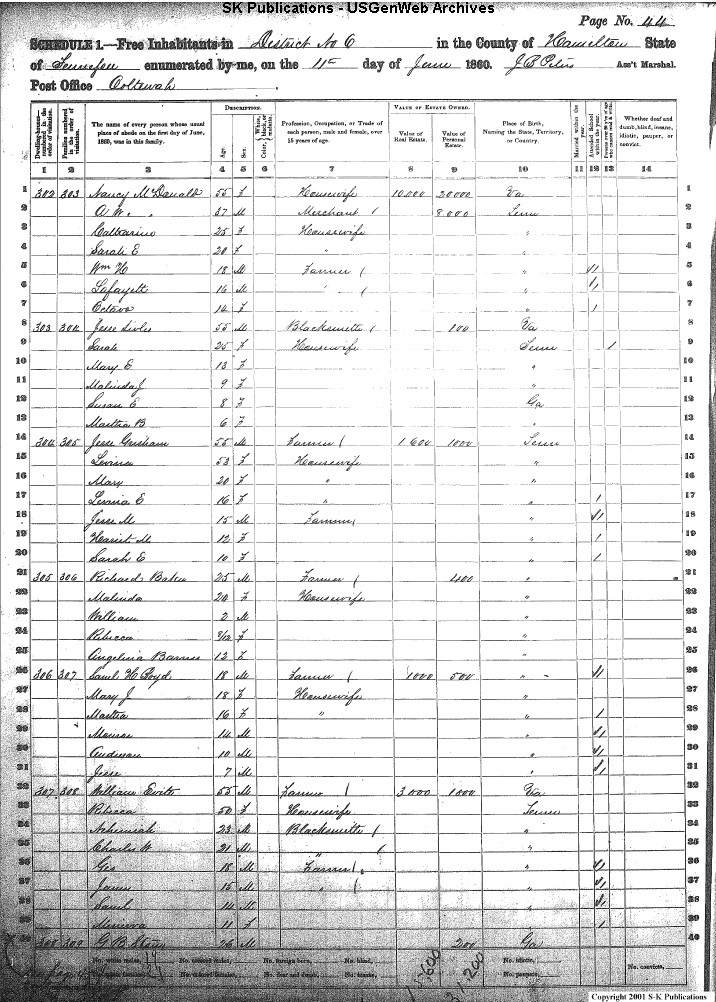 SK Publications - USGenWeb Archives
Page No. 44
SCHEDULE 1.—Free Inhabitants in District No 6 in the County of Hamilton State
of Tennessee enumerated by me, on the 11th day of June 1860. J B Peters Ass't Marshal.
Post Office Ooltewah
DESCRIPTION. VALUE OF ESTATE OWNED.
Dwelling-houses— numbered in the order of visitation. Families numbered in the order of visitation. The name of every person whose usual place of abode on the first day of June, 1860, was in this family. Age. Sex. Color, White, black, or mulatto. Profession, Occupation, or Trade of each person, male and female, over 15 years of age. Value of Real Estate. Value of Personal Estate. Place of Birth, Naming the State, Territory, or Country. Married within the year. Attended School within the year. Persons over 20 y'rs of age who cannot read & write. Whether deaf and dumb, blind, insane, idiotic, pauper, or convict.
1 2 3 4 5 6 7 8 9 10 11 12 13 14
1 302 303 Nancy McDanald 55 F Housewife 10,000 20000 Va 1
2 A. W. " 37 M Merchant / 8,000 Tenn 2
3 Catharine 25 F Housewife " 3
4 Sarah E 20 F " " 4
5 Wm H 18 M Farmer / " 1 5
6 Lafayett 16 M " / " 1 6
7 Octava 14 F " 1 7
8 303 304 Jesse 55 M Blacksmith / 100 Va 8
9 Sarah 25 F Housewife Tenn 1 9
10 Mary E 13 F " 10
11 Malinda J 9 F " 11
12 Susan E 8 F Ga 12
13 Martha B 6 F " 13
14 304 305 Jesse Grisham 55 M Farmer / 1600 1000 Tenn 14
15 Levina 53 F Housewife " 15
16 Mary 20 F " " 16
17 Levinia E 16 F " " 1 17
18 Jesse M 15 M Farmer / " 1 18
19 Hariet M 12 F " 1 19
20 Sarah E 10 F " 1 20
21 305 306 Richard Baker 25 M Farmer / 400 " 21
22 Malinda 24 F Housewife " 22
23 William 2 M " 23
24 Rebecca 8/12 F " 24
25 Angelina Barnes 12 F " 25
26 306 307 Saml H Boyd 18 M Farmer / 1000 500 " 1 26
27 Mary J 18 F Housewife " 27
28 Martha 16 F " " 1 28
29 Monroe 14 M " 1 29
30 Anderson 10 M " 1 30
31 Jesse 7 M " 1 31
32 307 308 William Evitt 55 M Farmer / 3000 1000 Va 32
33 Rebecca 50 F Housewife Tenn 33
34 Nehemiah 23 M Blacksmith / " 34
35 Charles W 21 M " / " 35
36 Geo 18 M Farmer / " 1 36
37 James 15 M " / " 1 37
38 Saml 14 M " 1 38
39 Minerva 11 F " 1 39
40 308 309 G B 26 M 200 Ga 40
No. white males, No. colored males, No. foreign born, No. blind, No. idiotic,
No. white females, No. colored females, No. deaf and dumb, No. insane, No. paupers, No. convicts,
31,200
Copyright 2001 S-K Publications